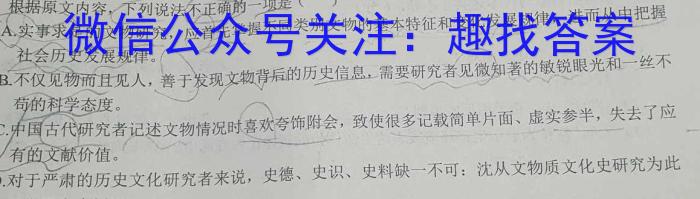 根据原文内容，下列说法不正确的一项是（ ）
A.实事求是
微信公众号关注：趣找答案
社会历史发展规律。
B.不仅见物而且见人，善于发现文物背后的历史信息，需要研究者见微知著的敏锐眼光和一丝不
苟的科学态度。
C.中国古代研究者记述文物情况时喜欢夸饰附会，致使很多记载简单片面、虚实参半，失去了应
有的文献价值。
.对于严肃的历史文化研究者来说，史德、史识、史料缺一不可：沈从文物质文化史研究为此